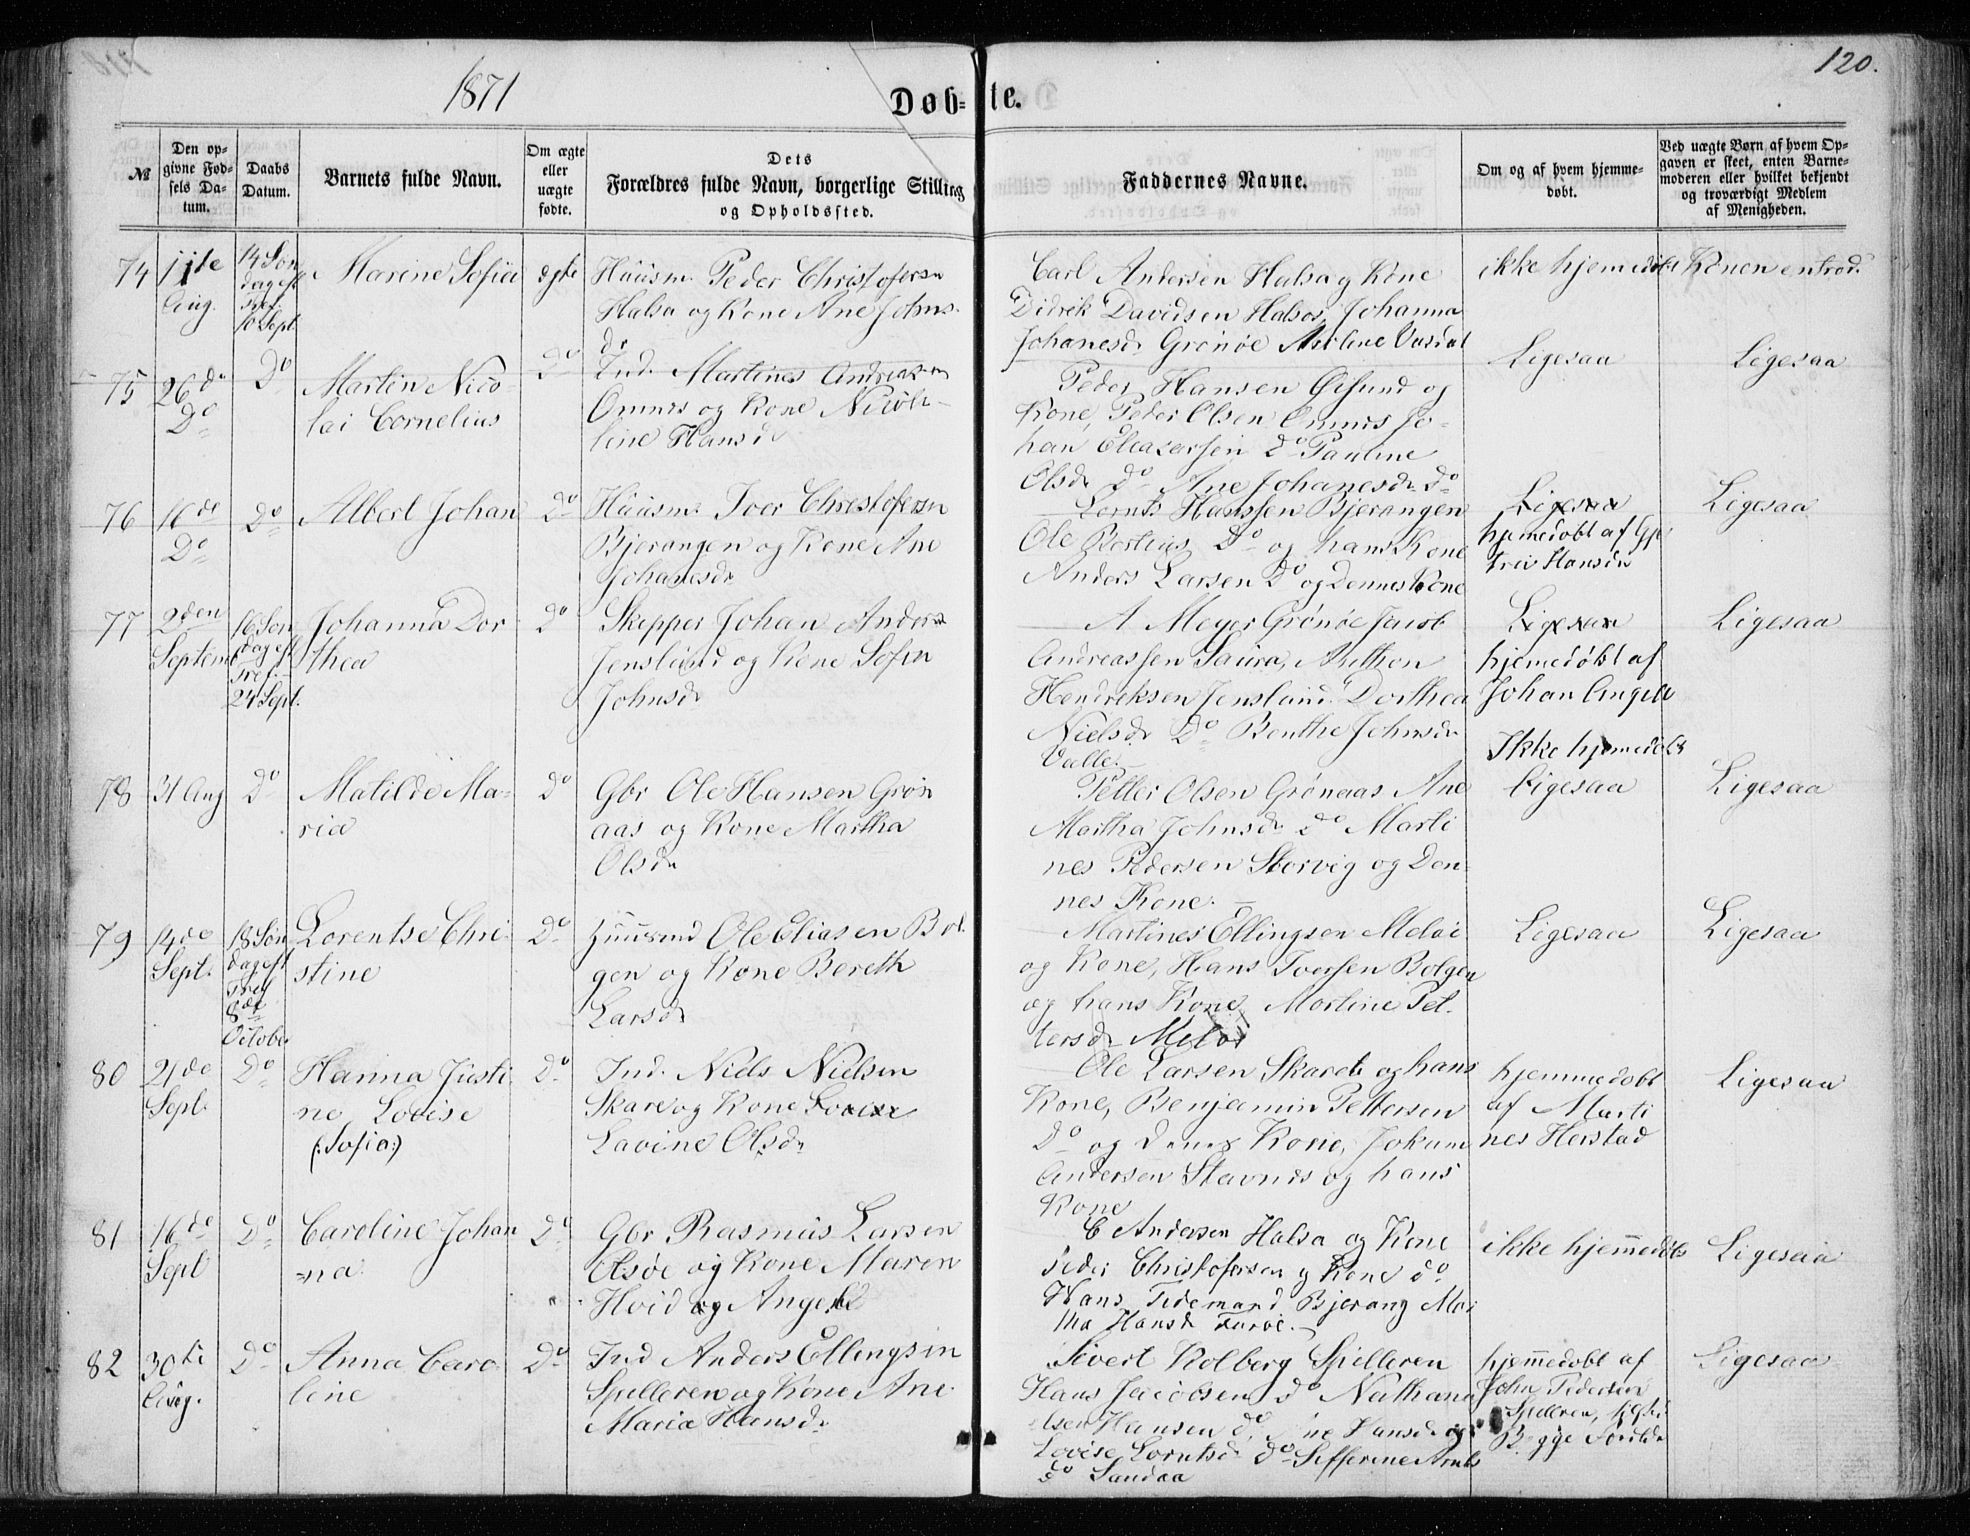 1871
120.
Døb-te.
№
Den op-
givne Fød-
sels Da-
tum.
Daabs
Datum.
Barnets fulde Navn.
Om ægte
eller
uægte
fødte.
Dets
Forældres fulde Navn, borgerlige Stilling
og Opholdssted.
Faddernes Navne.
Om og af hvem hjemme-
døbt.
Ved uægte Børn, af hvem Op-
gaven er skeet, enten Barne-
moderen eller hvilket bekjendt
og troværdigt Medlem
af Menigheden.
74
11te
Aug.
14 Søn
dag eft
Tref.
10 Sept.
Marine Sofia
ægte
Huusm. Peder Christofersn
Halsa og Kone Ane Johns.
dr
Carl Andersen Halsa og Kone
Didrik Davidsen Halsos, Johanna
Johanesdr Grønøe
ikke hjemedøbt
Konen entrod.
75
26de
Do
Do
Martin Nico-
lai Cornelius
Do
Ind. Martines Andreasen
Ømnes og Kone Nicoli-
line Hansdr
Peder Hansen Øesund og
Kone, Peder Olsen Ømnes Jo-
han Eleasersen Do Pauline
Olsdr Do Ane Johanesdr Do
Ligesaa
Ligesaa
76
10de
Do
Do
Albert Johan
Do
Huusm. Iver Christofersn
Bjerangen og Kone Ane
Johanesdr
Lornts Hanssen Bjerangen
Ole Bertius Do og hans Kone
Anders Larsen Do og Dennes Kone
Ligesaa
hjemedøbt af
Hansdr
Ligesaa
77
2den
Septemb
16 Søn
dag eft
Tref.
24 Sept.
Johanna Dor
thea
Do
Skipper Johan Anders
Jensland og Kone Sofia
Johnsdr
A Meyer Grønøe Jacob
Andreassen Saura, Anthon
Hendriksen Jensland Dorthea
Nielsdr Do Benthe Johnsdr
Valle.
Ligesaa
hjemedøbt af
Johan Angell
Ligesaa
78
31 Aug
Do
Matilde Ma-
ria
Do
Gbr Ole Hansen Grøn
aas og Kone Martha
Olsdr
Petter Olsen Grønaas Ane
Martha Johnsdr Do Marti
nes Pedersen Storvig og Den-
nes Kone.
Ikke hjemedøbt
Ligesaa
Ligesaa
79
14de
Sept.
18 Søn
dag eft
Tref
8de
Octobr
Lorentse Chri
stine
Do
Huusmd Ole Eliasen Bol
gen og Kone Bereth
Larsdr
Martines Ellingsen Meløe
og Kone, Hans Iversen Bolgen
og hans Kone, Martine Pet-
tersdr Meløe
Ligesaa
Ligesaa
80
21de
Sept.
Do
Hanna Justi
ne Lovise
(:Sofia:)
Do
Ind. Niels Nielsen
Skare og Kone Lovise
Lavine Olsdr
Ole Larsen Skaret og hans
Kone, Benjamin Pettersen
Do og Dennes Kone, Jokum
Andersen Stavnes og hans
Kone
hjemmedøbt
af Marti
nes Herstad
Ligesaa
81
16de
Sept
Do
Caroline Johan
na
Do
Gbr Rasmus Larsen
Olsøe og Kone Maren
Hvid og Angell
C Andersen Halsa og Kone
Peder Christofersen og Kone do
Hans Tidemand Bjerang Mar
tha Hansdr
ikke hjemmedøbt
Ligesaa
82
30te
Aug.
Do
Anna Caro
line
Do
Ind Anders Ellingsen
Spilleren og Kone Ane
Maria Hansdr
Sivert Kolberg Spilleren
Hans Jacobsen do Nathana
elsen Hansen do, Ane Hansdr og
Lovise Lorntsdr do Sefferine
do Sandaa
hjemmedøbt af
John Pedersen
Spilleren,
Begge
Ligesaa